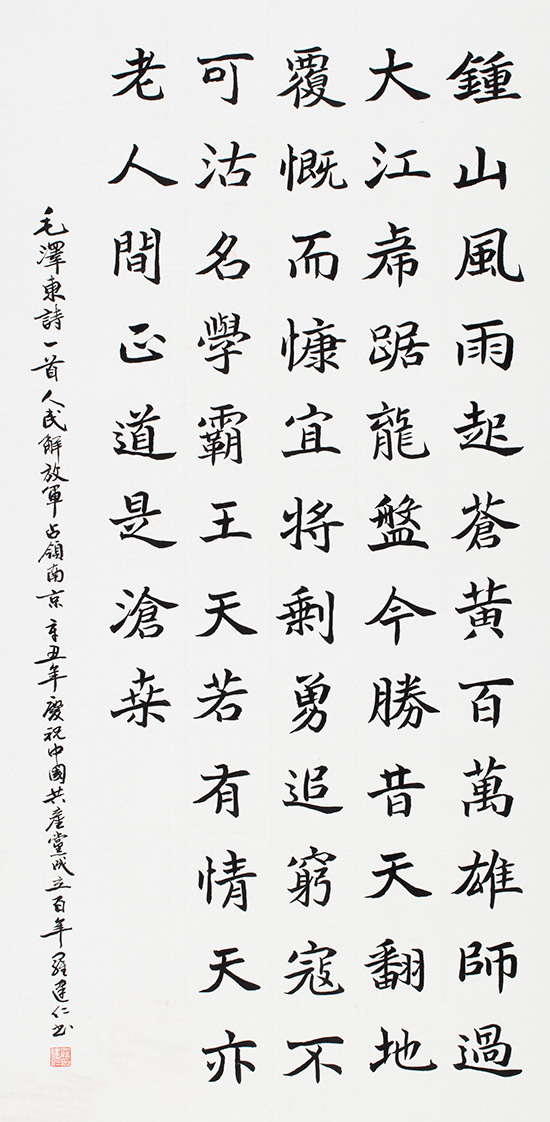 鍾山風雨起蒼黃百萬雄師過
大江虎踞龍盤今勝昔天翻地
覆慨而慷宜將剩勇追窮寇不
可沽名學霸王天若有情天亦
老人間正道是滄桑
毛澤東詩一首人民解放軍占領南京辛丑年慶祝中國共產黨成立百年羅建仁書